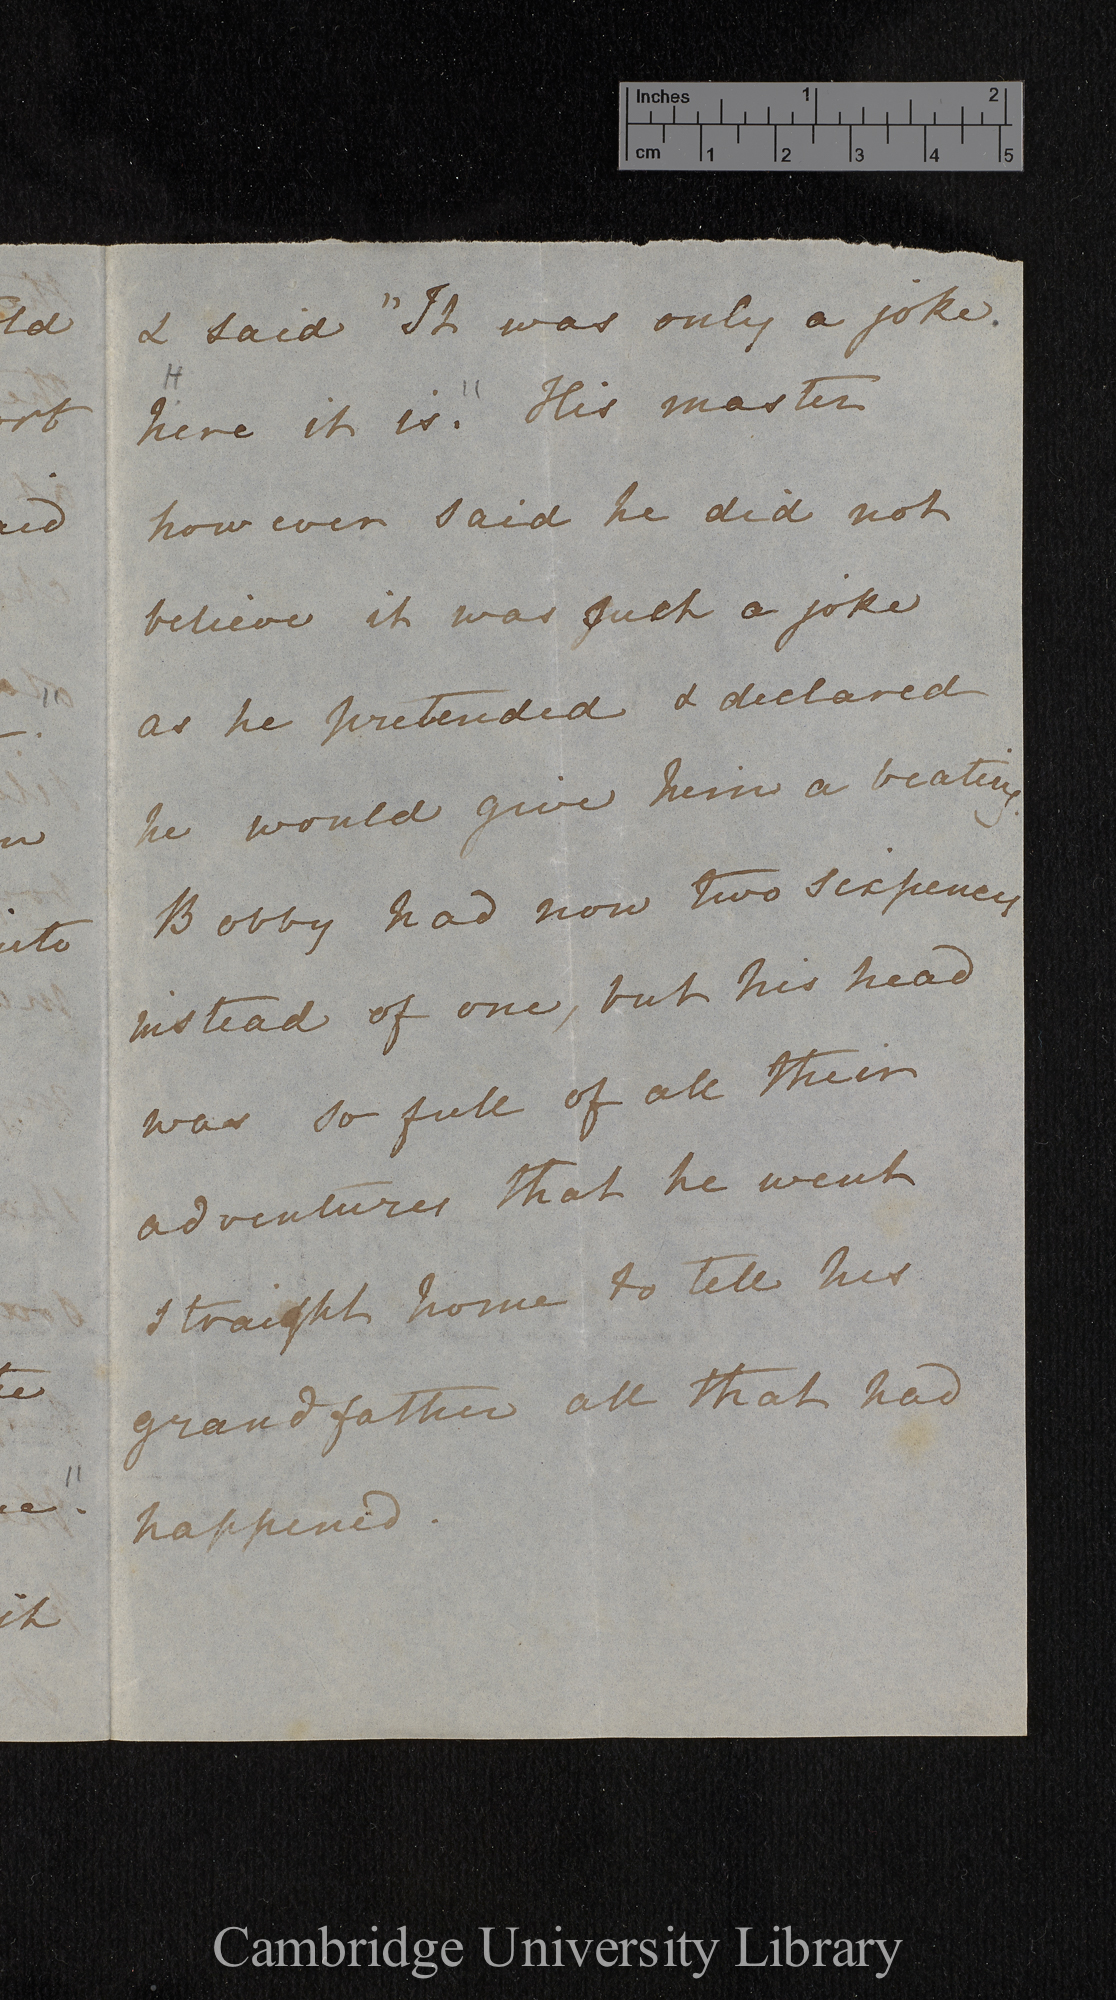 Inches 1 2
cm 1 2 3 4 5
& said "It was only a joke.
H
here it is." His master
however said he did not
believe it was such a joke
as he pretended & declared
he would give him a beating.
Bobby had now two sixpences
instead of one, but his head
was so full of all their
adventures that he went
straight home to tell his
grandfather all that had
happened.
Cambridge University Library